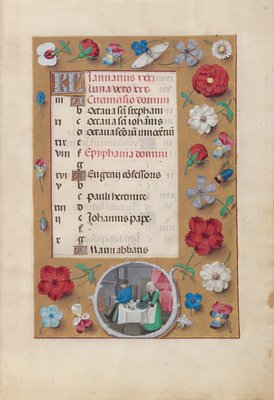 KL Ianuarius xxxi
Luna vero xxx
iii A Circumcisio domini
b Octava sci stephani
xi c Octava sci iohānis
d Octava scōrū innocētū
xix e
viii f Epyphania domini
g
xvi A Eugenii cōfessoris
v b
c Pauli heremite
xiii d
ii e Iohannis pape
f
x g
A Mauri abbatis